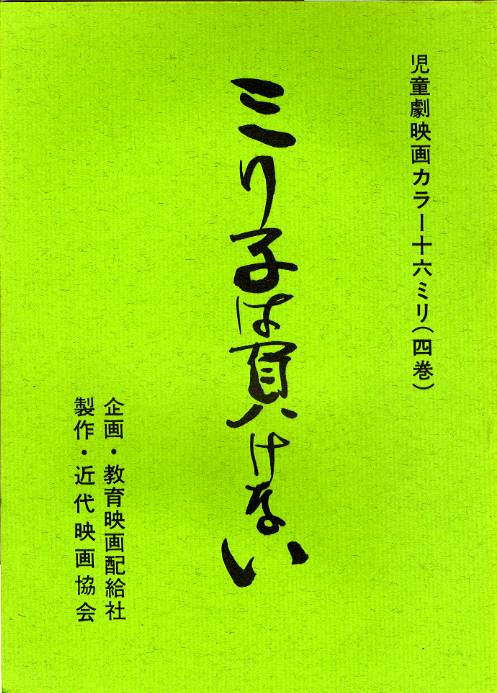 児童劇映画カラー十六ミリ(四巻)
ミリ子は負けない
企画・教育映画配給社
製作・近代映画協会